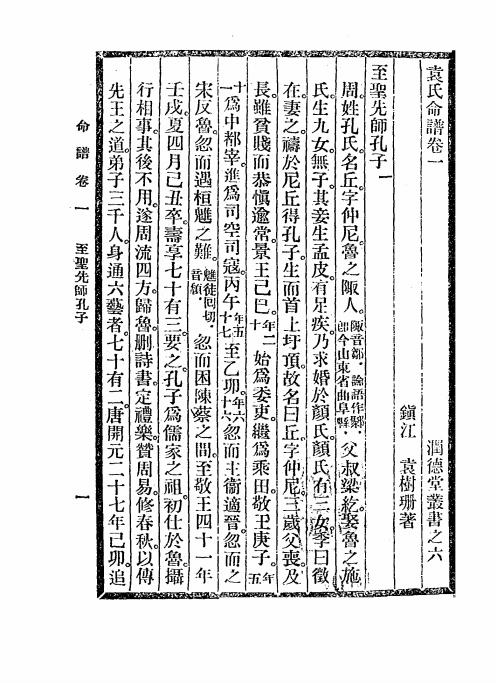 袁氏命譜卷一
潤德堂叢書之六
鎭江 袁樹珊著
至聖先師孔子 一
周姓孔氏名丘字仲尼魯之陬人。陬音鄒、論語作鄹、卽今山東省曲阜縣、父叔梁紇娶魯之施
氏生九女。無子。其妾生孟皮。有足疾。乃求婚於顏氏。顏氏有三女。季曰徵
在妻之。禱於尼丘得孔子。生而首上圩頂。故名曰丘。字仲尼。三歲父喪。及
長。雖貧賤而恭愼逾常。景王己巳。年二十始爲委吏。繼爲乘田。敬王庚子。年五
十一爲中都宰。進爲司空司寇。丙午年五十七至乙卯。年六十六忽而主衞適晉。忽而之
宋反魯。忽而遇桓魋之難。魋徒回切、音頹、忽而困陳蔡之間。至敬王四十一年
壬戌夏四月己丑卒。壽享七十有三。要之。孔子爲儒家之祖。初仕於魯。攝
行相事。其後不用。遂周流四方。歸魯。刪詩書。定禮樂。贊周易。修春秋。以傳
先王之道。弟子三千人。身通六藝者。七十有二。唐開元二十七年己卯。追
命譜 卷一 至聖先師孔子 一